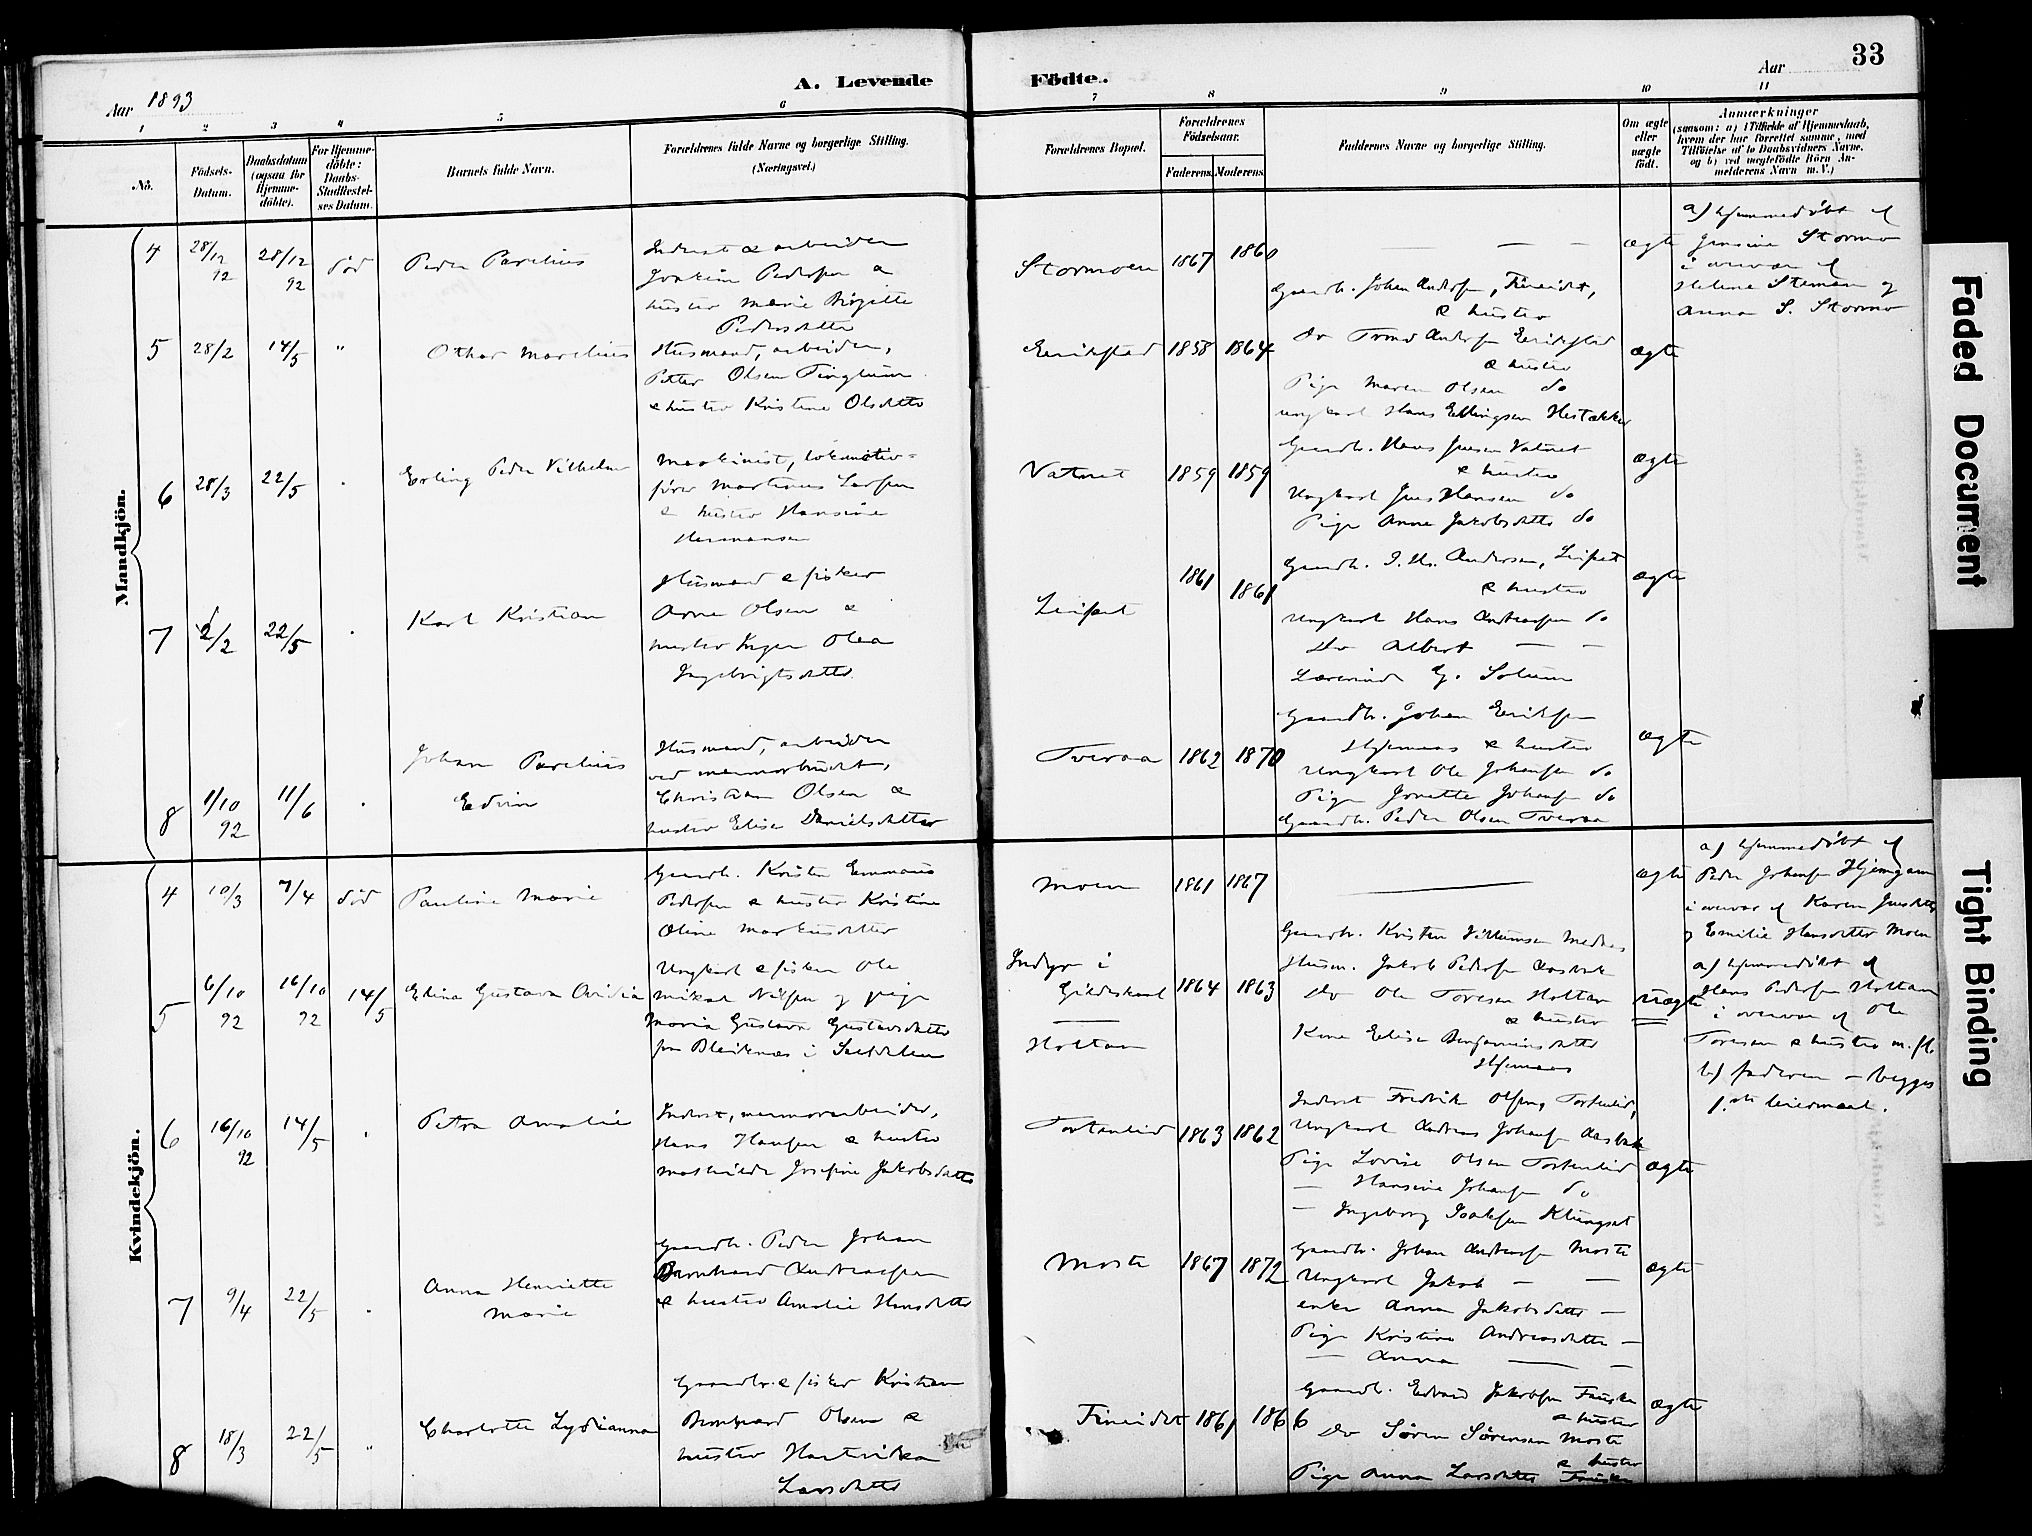 33
Aar 1893
A. Levende
Födte.
Aar
1 2 3 4 5 6 7 8 9 10 11
No.
Födsels-
Datum.
Daabsdatum
(ogsaa for
Hjemme-
döbte).
For Hjemme-
döbte:
Daabs-
Stadfæstel-
ses Datum.
Barnets fulde Navn.
Forældrenes fulde Navne og borgerlige Stilling.
(Næringsvei.)
Forældrenes Bopæl.
Forældrenes
Födselsaar.
Faderens. Moderens.
Faddernes Navne og borgerlige Stilling.
Om ægte
eller
uægte
födt.
Anmærkninger
(saasom: a) i Tilfælde af Hjemmedaab,
hvem der har forrettet samme, med
Tilföielse af to Daabsvidners Navne.
og b) ved uægtefödte Börn An-
melderens Navn m. V.)
Mandkjön.
4 28/12 92 28/12 92 død Peder Parelius
Inderst & arbeider
Joakim Pedersen &
hustro Marie Birgitte
Pedersdatter
Stormoen 1867 1860
— — —
ægte
a) hjemmedøbt af
Jensine Stormo
i overvær af
Helene Stemoen og
Anna S. Stormo
5 28/2 14/5 " Othar Marelius
Husmand, arbeider,
Petter Olsen
& hustro Kristine Olsdatter
Eerikstad 1858 1864
Gaardb. Johan Andersen, Finneidet,
& hustro
do Trond Andersen Eerikstad
& hustro
Pige Maren Olsen do
Ungkarl Hans Ellingsen
ægte
6 28/3 22/5 Erling Peder Vilhelm
Maskinist, lokomotiv-
fører Martinus Larsen
& hustro Hansine
Hermansen
Vatnet 1859 1859
Gaardb. Hans Jensen Vatnet
& hustro
Ungkarl Jens Hansen do
Pige Anne Jakobsdatter do
ægte
7 2/2 22/5 Karl Kristian
Husmand & fisker
Arne Olsen &
hustro Inger Olea
Ingebrigtsdatter
Leifset 1861 1861
Gaardb. J. Hs. Andersen, Leifset
& hustro
Ungkarl Hans Andreassen do
Do Albert — —
Lærerinde G. Solum
ægte
8 1/10 92 11/6 Johan Parelius
Edvin
Husmand, arbeider
ved marmorbrudet,
Christian Olsen &
hustro Elise Danielsdatter
Tveraa 1862 1870
Gaardb. Johan Eriksen
Hjemaas & hustro
Ungkarl Ole Johansen do
Pige Jonette Johansen do
Gaardb. Peder Olsen Tveraa
ægte
Kvindekjön.
4 10/3 7/4 død Pauline Marie
Gaardb. Kristen Emmaus
Pedersen & hustro Kristine
Oline Markusdatter
Moen 1861 1867
ægte
a) hjemmedøbt af
Peder Johansen Hjemgam
i overvær af Karen Jensdatter
og Emilie Hansdatter Moen
5 6/10 92 16/10 92 14/5 Elina Gustava Ovidia
Ungkarl & fisker Ole
Mikal Nilsen og pige
Maria Gustava Gustavsdatter
fra Bleiknæs i Saltdalen
Indyr i
Gildeskaal
Hottan 1864 1863
Gaardb. Kristen Villumsen Medaas
Husm. Jakob Pedersen Aasbak
Do Ole Toresen Hottan
& hustro
Kone Elise Benjaminsdatter
Hjemaas
uægte
a) hjemmedøbt af
Hans Pedersen Hottan
i overvær af Ole
Toresen & hustro m. fl.
b) faderen — begges
1.ste leiermaal.
6 16/10 92 14/5 Petra Amalie
Inderst, marmorarbeider,
Hans Hansen & hustro
Mathilde Josefine Jakobsdatter
Tortenlid 1863 1862
Inderst Fredrik Olsen, Tortenlid,
Ungkarl Andreas Johansen Aasbak
Pige Lovise Olsen Tortenlid
— Hansine Johansen do
— Ingeborg Isaksen Klungset
ægte
7 9/4 22/5 Anna Henriette
Marie
Gaardb. Peder Johan
Bernhard Andreassen
& hustro Amalie Hansdatter
Moste 1867 1872
Gaardb. Johan Andreassen Moste
Ungkarl Jakob — —
enke Anna Jakobsdatter —
Pige Kristine Andreasdatter —
— Anna — —
ægte
8 18/3 22/5 " Charlotte Lydianna
Gaardbr. & fisker Kristian
Bernhard Olsen &
hustro Hartvikka
Larsdatter
Finneidet 1861 1866
Gaardb. Edvard Jakobsen Fauske
& hustro
Do Søren Sørensen Moste
& hustro
Pige Anna Larsdatter Fauske
ægte
Faded Document
Tight Binding